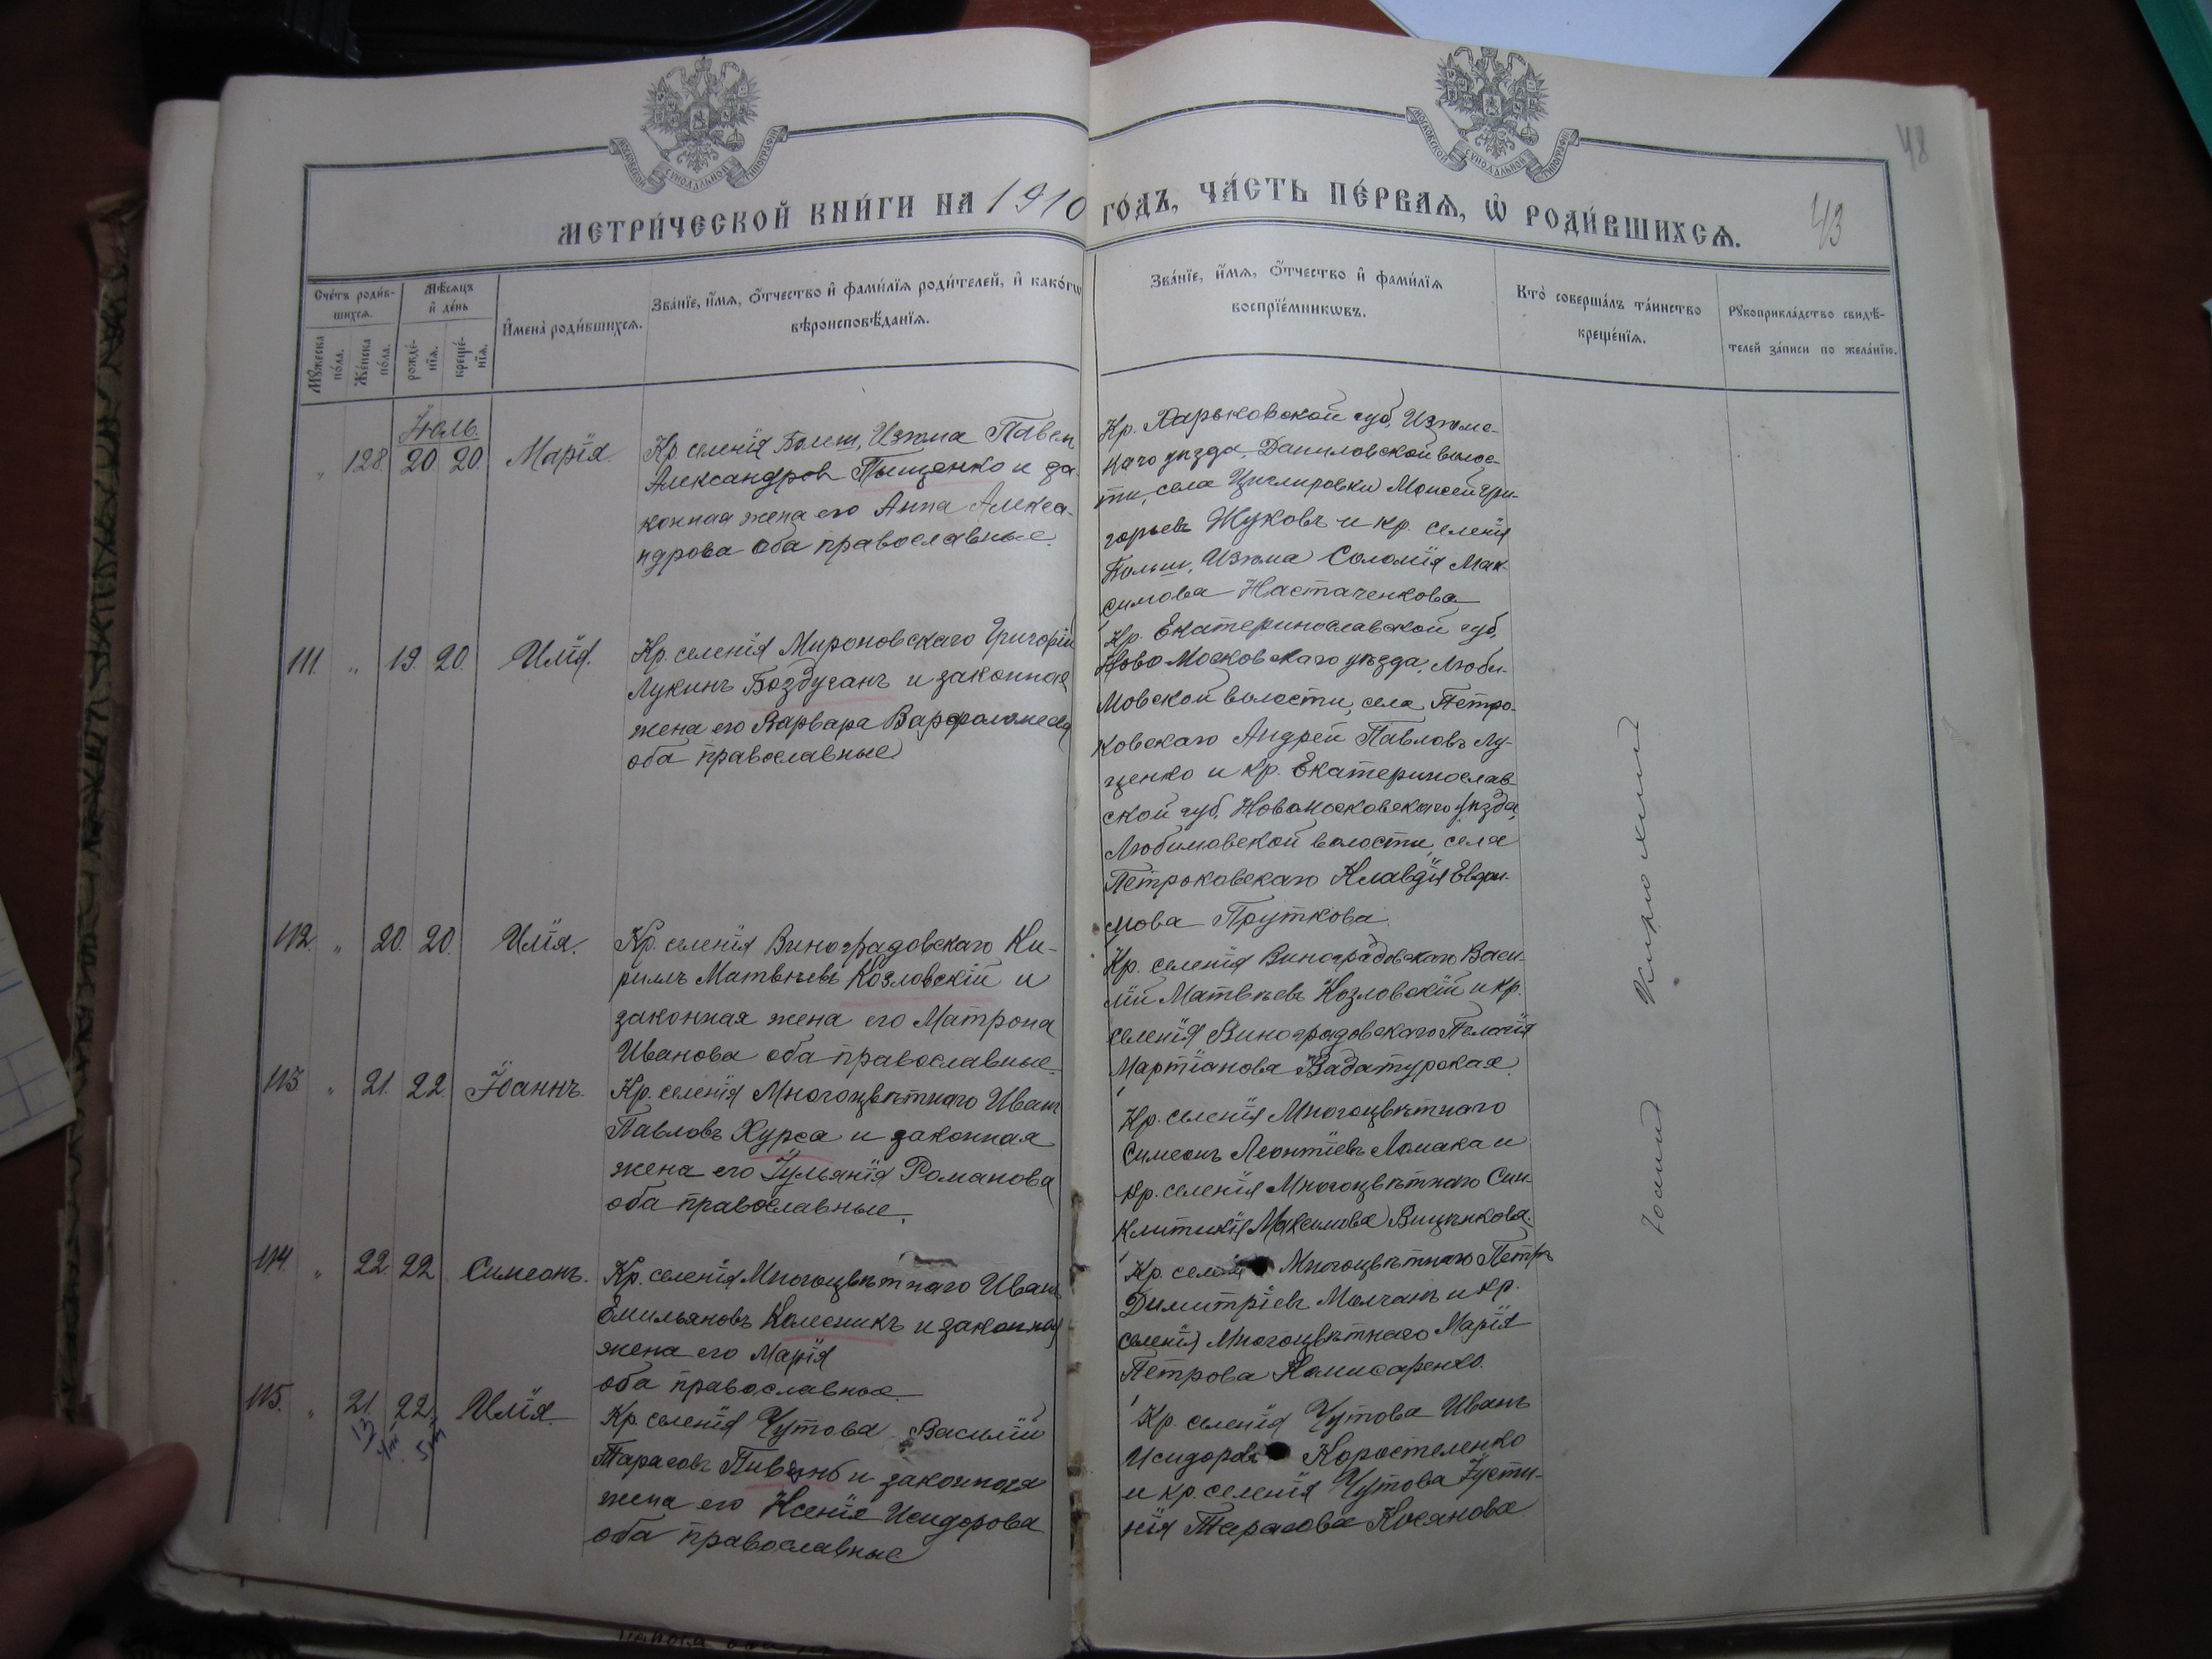 МОСКОВСКОЙ СѴНОДАЛЬНОЙ ТИПОГРАФІИ
МОСКОВСКОЙ СѴНОДАЛЬНОЙ ТИПОГРАФІИ
48
43
МЕТРИ́ЧЕСКОЙ КНИ́ГИ НА 1910 ГО́ДЪ, ЧА́СТЬ ПЕ́РВАѦ, Ѡ҆ РОДИ́ВШИХСѦ.
Сче́тъ роди́в-
шихсѧ.
Мꙋ́жеска по́ла.
Же́нска по́ла.
Мѣ́сѧцъ
и҆ де́нь
рожде́-
нїѧ.
креще́-
нїѧ.
И҆мена̀ роди́вшихсѧ.
Зва́нїе, и҆́мѧ, ѻ҆́тчество и҆ фами́лїѧ роди́телей, и҆ како́гѡ
вѣроисповѣ́данїѧ.
Зва́нїе, и҆́мѧ, ѻ҆́тчество и҆ фами́лїѧ
воспрїе́мникѡвъ.
Кто̀ соверша́лъ та́инство
креще́нїѧ.
Рꙋкоприкла́дство свидѣ́-
телей за́писи по жела́нїю.
Іюль.
„ 128. 20. 20. Марія.
Кр. селенія Больш. Изюма Павел
Александров Пыщенко и за
конная жена его Анна Алекса-
ндрова оба православные.
Кр. Харьковской губ. Изюмс-
каго уѣзда, Даниловской волос-
ти, села Моисей Гри-
горьевъ Жуковъ и кр. селенія
Больш. Изюма Соломія Мак-
симова
111. „ 19. 20. Илія.
Кр. селенія Мироновскаго Григорій
Лукинъ Боздуганъ и законная
жена его Варвара Варфоломеева
оба православные
Кр. Екатеринославской губ.
Ново Московскаго уѣзда, Люби-
мовской волости, села Петро-
ковскаго Андрей Павловъ Лу-
ценко и кр. Екатеринослав-
ской губ. Новомосковскаго уѣзда,
Любимовской волости, села
Петроковскаго Клавдія Евфи-
мова Пруткова.
112. „ 20. 20. Илія.
Кр. селенія Виноградовскаго Ки-
риллъ Матвѣевъ Козловскій и
законная жена его Матрона
Иванова оба православные.
Кр. селенія Виноградовскаго Васи-
лій Матвѣевъ Козловскій и кр.
селенія Виноградовскаго Пелагія
Мартіанова Вадатурская.
113 „ 21. 22. Іоаннъ.
Кр. селенія Многоцвѣтнаго Иванъ
Павловъ Хурса и законная
жена его Іульянія Романова
оба православные.
Кр. селенія Многоцвѣтнаго
Симеонъ Леонтіевъ Ломака и
кр. селенія Многоцвѣтнаго Син-
клитикія Максимова
114. „ 22. 22 Симеонъ.
Кр. селенія Многоцвѣтнаго Иванъ
Емильяновъ Колесникъ и законная
жена его Марія
оба православные.
Кр. селенія Многоцвѣтнаго Петръ
Димитріевъ Молчанъ и кр.
селенія Многоцвѣтнаго Марія
Петрова Комисаренко.
115. „ 21. 22. Илія.
13
Кр. селенія Чутова Василій
Тарасовъ и законная
жена его Ксенія Исидорова
оба православные
Кр. селенія Чутова Иванъ
Исидоровъ Коростеленко
и кр. селенія Чутова Іусти-
нія Тарасова Косянова